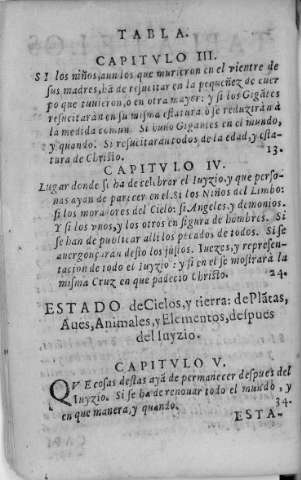 TABLA.
CAPITVLO III.
SI los niños, aun los que murieron en el vientre de
sus madres, ha de resucitar en la pequeñez de cuer
po que tuuieron, o en otra mayor: y si los Gigãtes
resucitaràn en su misma estatura ò se reduzirán à
la medida comun. Si vuo Gigantes en el mundo,
y quando. Si resucitaràn todos de la edad, y esta-
tura de Christo. 13.
CAPITVLO IV.
Lugar donde se ha de celebrar el Iuyzio, y que perso-
nas ayan de parecer en el. Si los Niños del Limbo:
si los moradores del Cielo: si Angeles, y demonios.
Y si los vnos, y los otros en figura de hombres. Si
se han de publicar alli los pecados de todos. Si se
auergonçaràn desto los justos. Iuezes, y represen-
tacion de todo el Iuyzio: y si en el se mostrarà la
misma Cruz en que padecio Christo. 24.
ESTADO de Cielos, y tierra: de Plãtas,
Aues, Animales, y Elementos, despues
del Iuyzio.
CAPITVLO V.
QVE cosas destas ayã de permanecer despues del
Iuyzio. Si se ha de renouar todo el mundo, y
en que manera, y quando. 34.
ESTA-